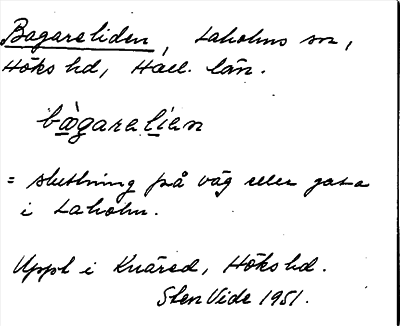 Bagareliden, Laholms sn,
Höks hd, Hall. län.
bàgarelien
= sluttning på väg eller gata
i Laholm.
Uppt i Knäred, Höks hd.
Sten Vide 1951.